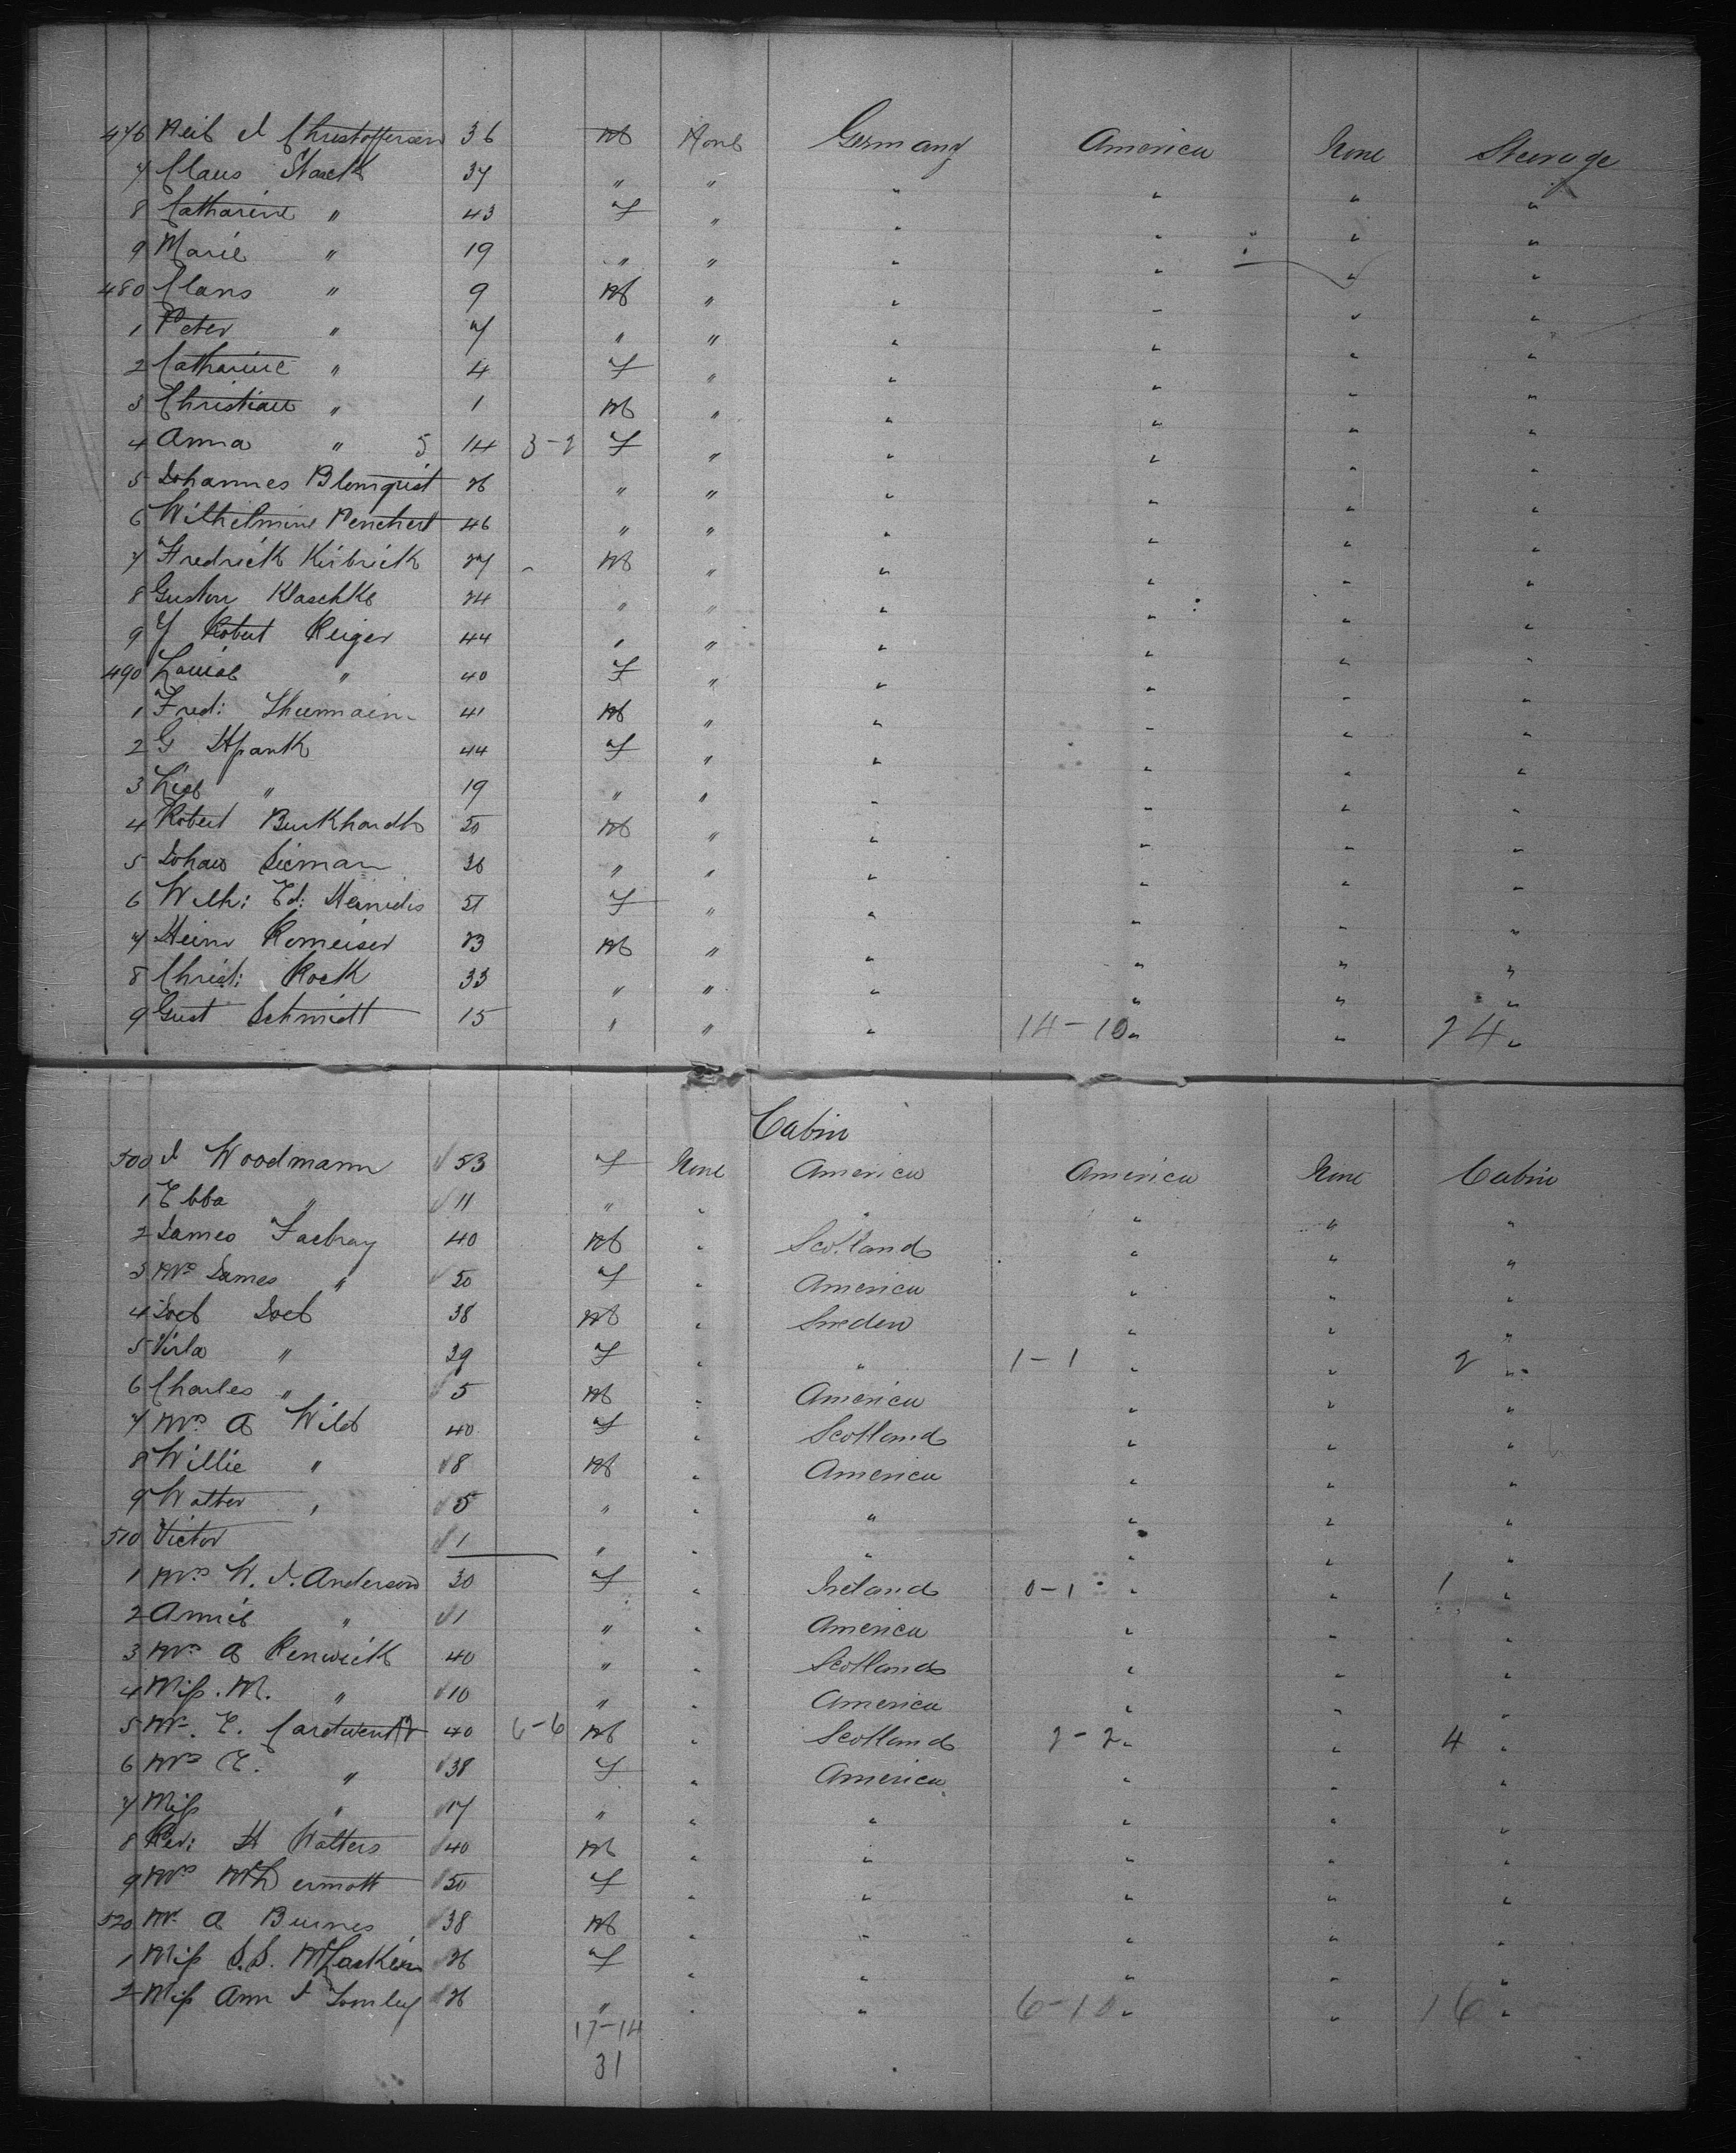 476 Neil J Christoffersen 36 M None Germany America None Steerage
7 Claus Staack 37 " " " " " "
8 Catharine " 43 F " " " " "
9 Marie " 19 " " " " " "
480 Claus " 9 M " " " " "
1 Peter " 7 " " " " " "
2 Catharine " 4 F " " " " "
3 Christian " 1 M " " " " "
4 Anna " 5 14 3-2 F " " " " "
5 Johannes Blomquist 26 " " " " " "
6 Wilhelmine 46 " " " " " "
7 Fredrick Kirbrick 27 M " " " " "
8 Gustav Klaschke 24 " " " " " "
9 J Robert Reiger 44 " " " " " "
490 Louise " 40 F " " " " "
1 Fred: 41 M " " " " "
2 G Spank 44 F " " " " "
3 Lise " 19 " " " " " "
4 Robert Burkhardt 50 M " " " " "
5 Johan Sieman 36 " " " " " "
6 Wilh: Ed: 51 F " " " " "
7 Heinr Romeiser 23 M " " " " "
8 Christ: Rock 33 " " " " " "
9 Gust Schmidt 15 " " " 14-10 " " 24 "
Cabin
500 J Woodmann 53 F None America America None Cabin
1 Ebba " 11 " " " " " "
2 James Facbray 40 M " Scotland " " "
3 Mrs James " 50 F " America " " "
4 38 M " Sweden " " "
5 Virla " 39 F " " 1-1 " " 2 "
6 Charles " 5 M " America " " "
7 Mrs A Wild 40 F " Scotland " " "
8 Willie " 8 M " America " " "
9 Walter " 5 " " " " " "
510 Victor 1 " " " " " "
1 Mrs W. J. Anderson 30 F " Ireland 0-1 " " 1 "
2 Annie " 1 " " America " " "
3 Mrs A Renwick 40 " " Scotland " " "
4 Miss. M. " 10 " " America " " "
5 Mr. E. 40 6-6 M " Scotland 2-2 " " 4 "
6 Mrs E. " 38 F " America " " "
7 Miss " 17 " " " " " "
8 Rev: H Walters 40 M " " " " "
9 Mrs McDermott 50 F " " " " "
520 Mr. A Burnes 38 M " " " " "
1 Miss S.S. 26 F " " " " "
2 Miss Ann J 26 " " " 6-10 " " 16 "
17-14
31